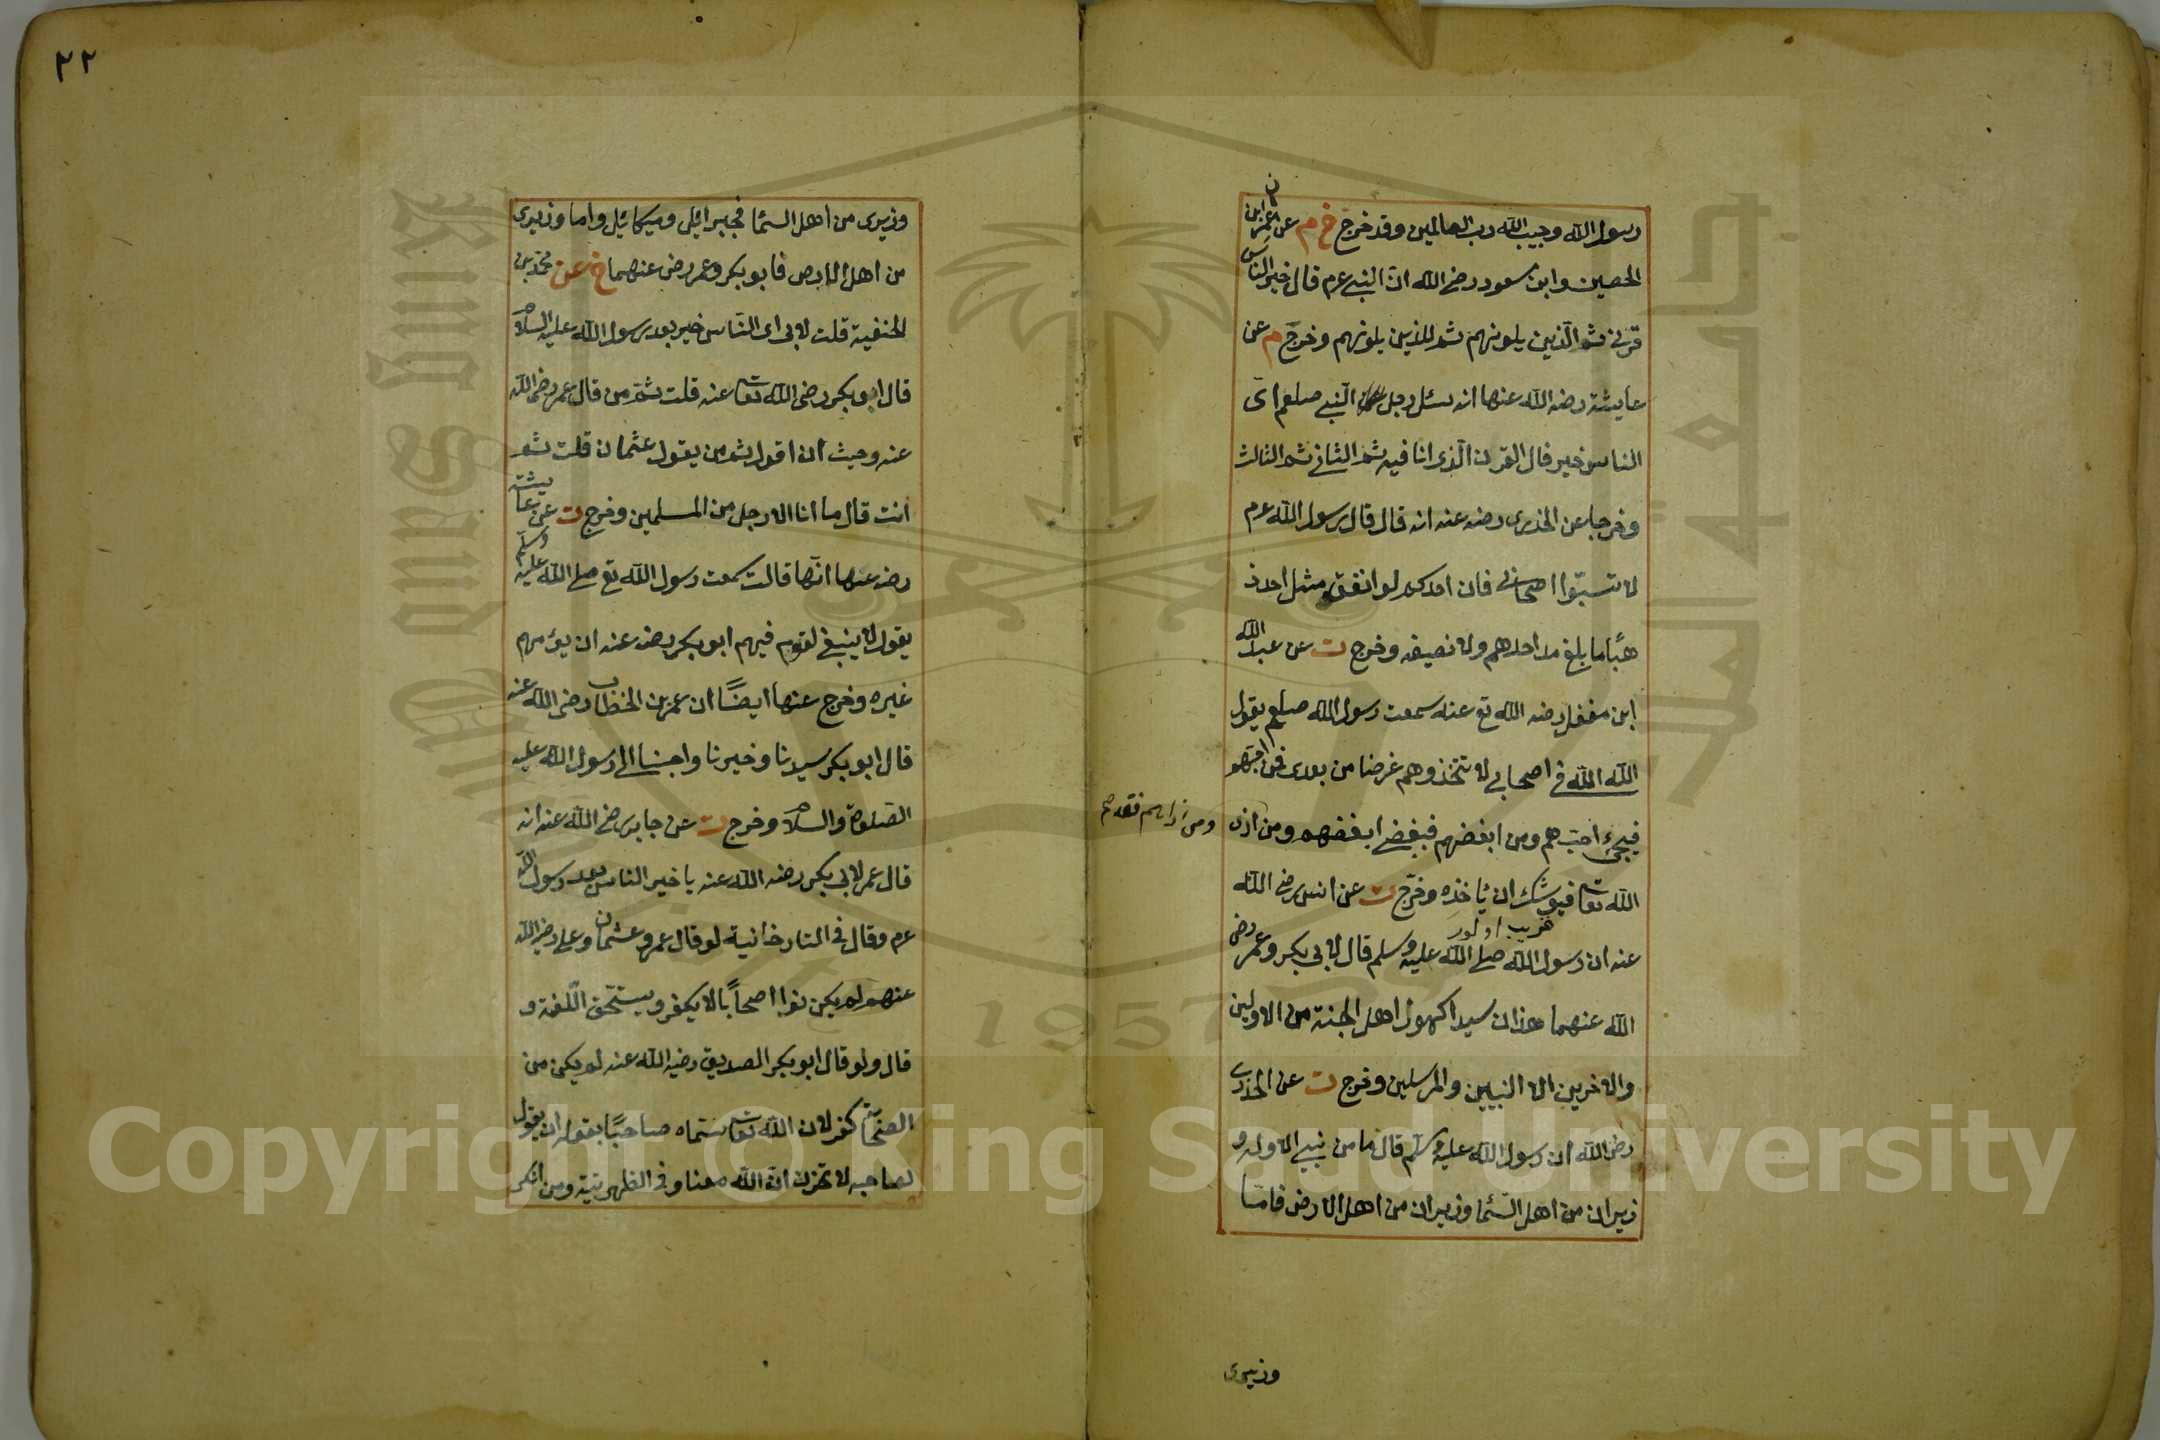 رسول الله وحبيب الله رب العالمين وقد خرج خ م عن عمران ابن
الحصين وابن مسعود رضى الله ان النبى عم قال خير الناس
قرنى ثم الذين يلونهم ثم الذين يلونهم وخرج م عن
عايشة رضى الله عنها انه سئل رجل النبى صلعم اى
الناس خير قال القرن الذى انا فيه ثم الثانى ثم الثالث
وخرجا عن الخدرى رضى عنه انه قال قال رسول الله عم
لا تسبوا اصحابى فان احدكم لو انفق مثل احد ذ
هبا ما بلغ مد احدهم ولا نصيفه وخرج ت عن عبد الله
ابن مغفل رضى الله تع عنه سمعت رسول الله صلعم يقول
الله الله فى اصحابى لا تتخذوهم غرضا من بعدى فمن احبهم
فبحبى احبهم ومن ابغضهم فببغضى ابغضهم ومن اذى
ومن اذاهم فقد صح
الله تعا فيوشك ان يأخذه وخرج ت عن انس رضى الله
قريب اولور
عنه ان رسول الله صلى الله عليه وسلم قال لابى بكر وعمر رضى
الله عنهما هذان سيدا كهول اهل الجنة من الاولين
والاخرين الا النبيين والمرسلين وخرج ت عن الخدرى
رضى الله ان رسول الله عليه وسلم قال ما من نبى الا وله و
زيران من اهل السما وزيران من اهل الارض فاما
وزيرى
٢٢
وزيرى من اهل السما فجبرائيل وميكائيل واما وزيرى
من اهل الارض فابو بكر وعمر رضى عنهما خ عن محمد بن
الحنفية قلت لابى اى الناس خير بعد رسول الله عليه السلام
قال ابو بكر رضى الله تعا عنه قلت ثم من قال عمر رضى الله
عنه وحيث ان اقول ثم من يقول عثمان قلت ثم
انت قال ما انا الا رجل من المسلمين وخرج ت عن عايشة
رضى عنها انها قالت سمعت رسول الله تع صلى الله عليه وسلم
يقول لا ينبغى لقوم فيهم ابو بكر رضى عنه ان يؤمهم
غيره وخرج عنها ايضا ان عمر بن الخطاب رضى الله عنه
قال ابو بكر سيدنا وخيرنا واحبنا الى رسول الله عليه
الصلوة والسلام وخرج ت عن جابر رضى الله عنه انه
قال عمر لابى بكر رضى الله عنه يا خير الناس بعد رسول الله
عم وقال فى التتارخانية لو قال عمر وعثمان وعلى رضى الله
عنهم لم يكونوا اصحابا لا يكفر ويستحق اللعنة و
قال ولو قال ابو بكر الصديق رضى الله عنه لم يكن من
الصحابة كفر لان الله تعا سماه صاحبا بقوله ان يقول
لصاحبه لا تحزن ان الله معنا وفى الظهيرية ومن انكر
Copyright © King Saud University
1957